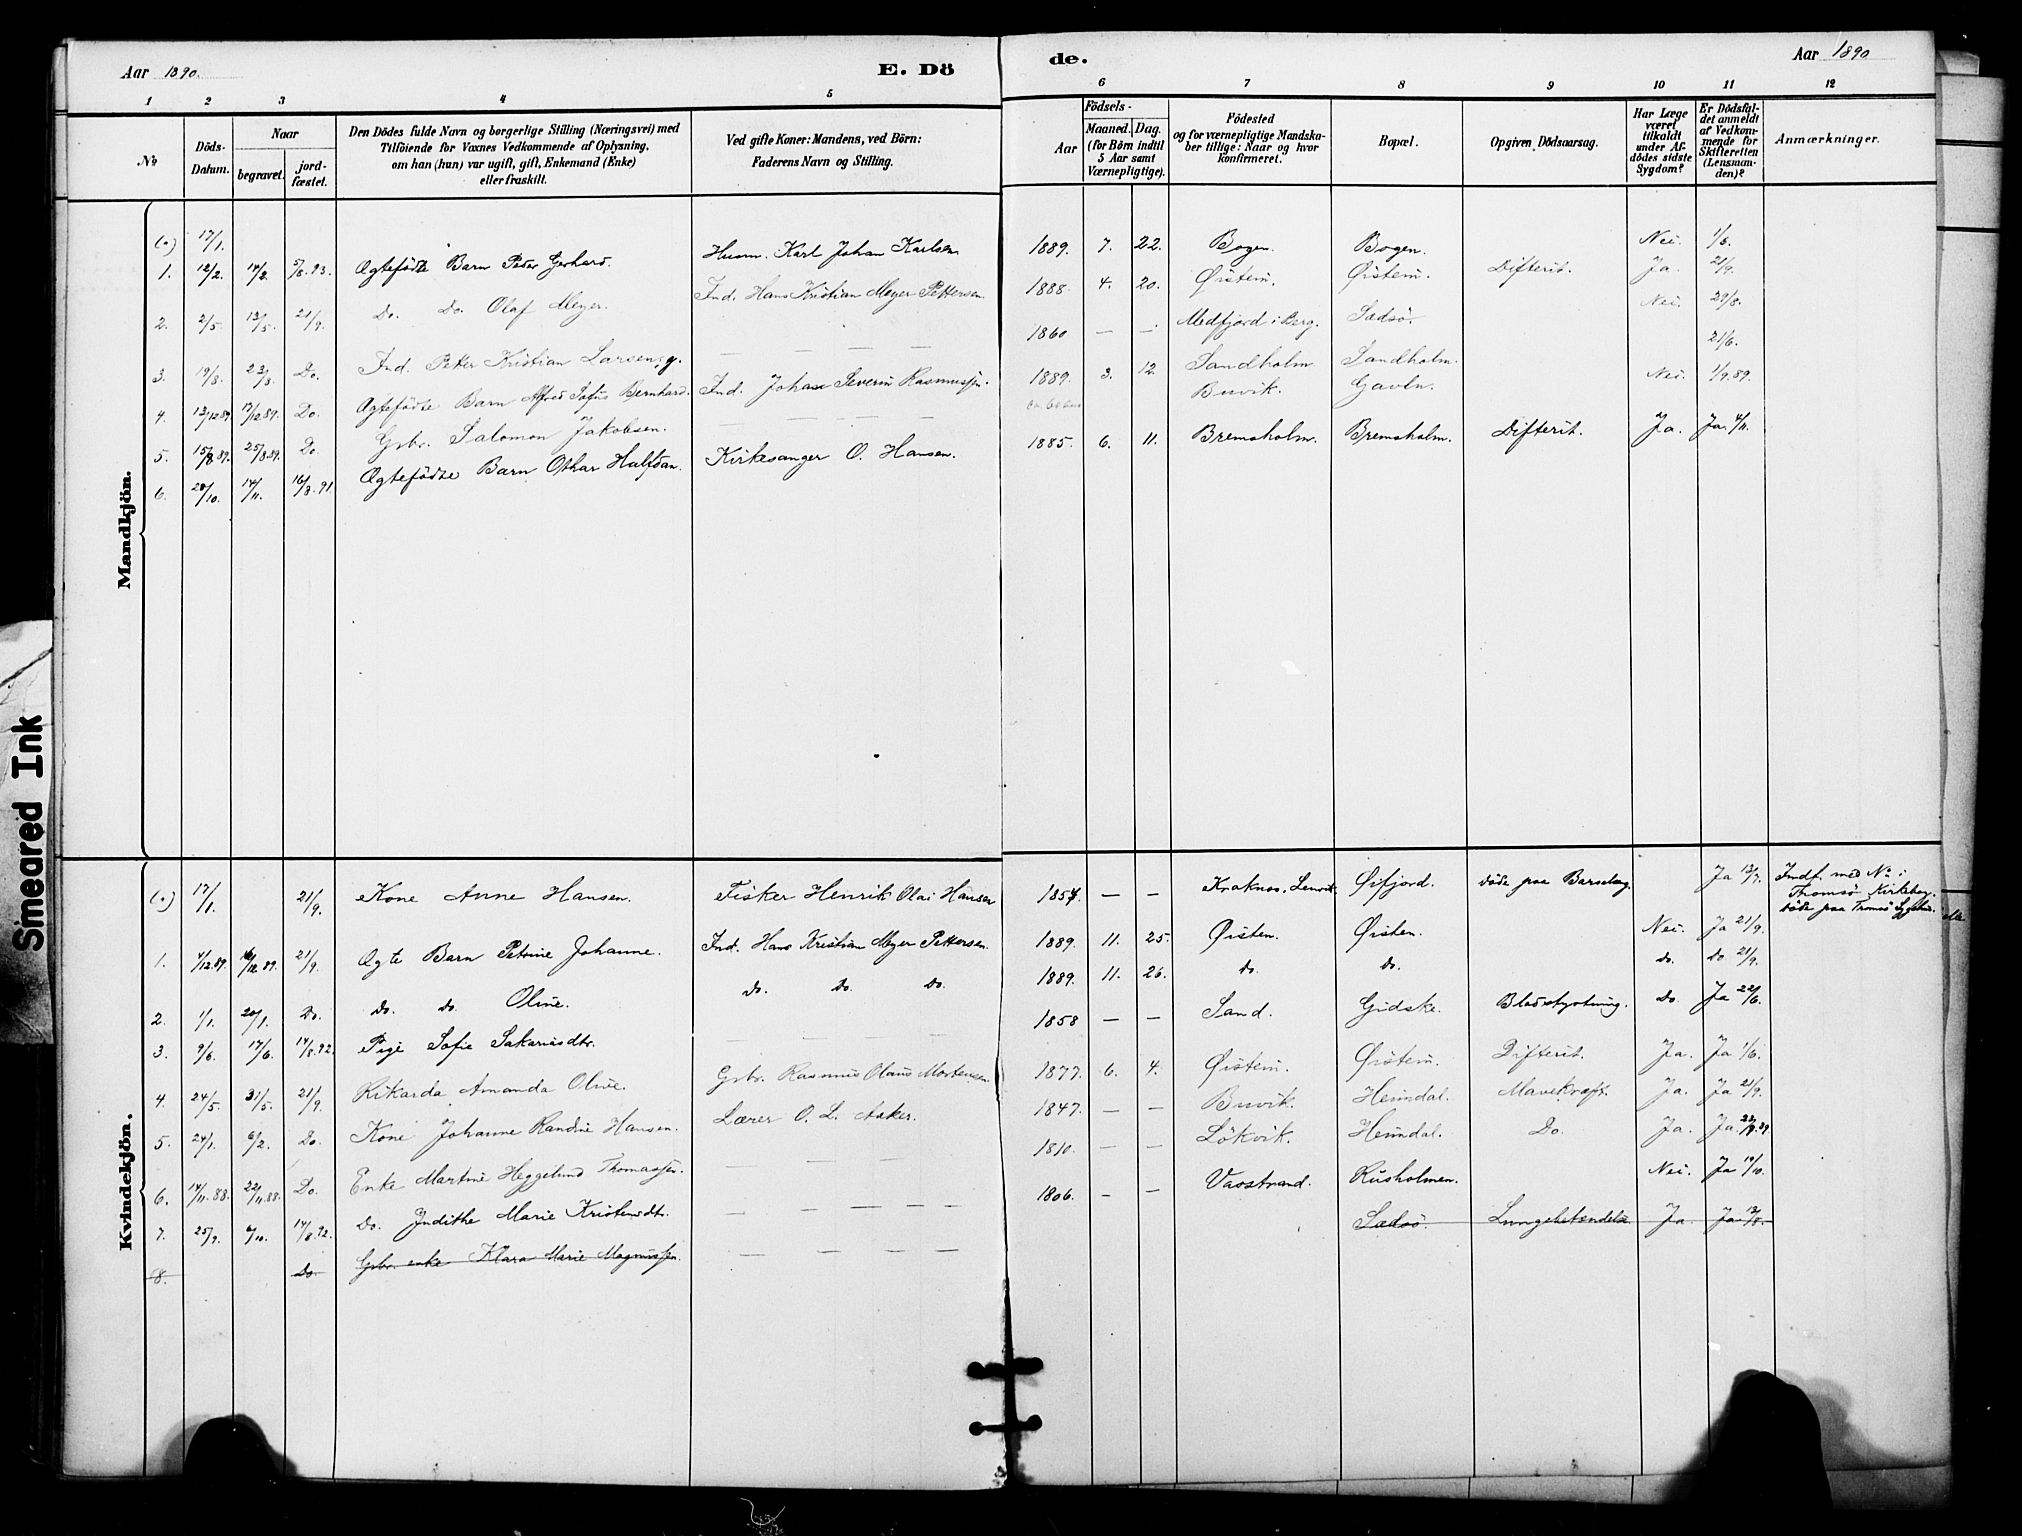 Aar 1890.
E. Dö
de.
Aar 1890
1 2 3 4 5
6 7 8 9 10 11 12
No
Döds-Datum.
Naar
begravet.
jord-fæstet.
Den Dödes fulde Navn og borgerlige Stilling (Næringsvei) med
Tilföiende for Voxnes Vedkommende af Oplysning,
om han (hun) var ugift, gift, Enkemand (Enke)
eller fraskilt.
Ved gifte Koner: Mandens, ved Börn:
Faderens Navn og Stilling.
Födsels-
Aar
Maaned. Dag.
(for Börn indtil
5 Aar samt
Værnepligtige).
Födested
og for værnepligtige Mandska-
ber tillige: Naar og hvor
konfirmeret.
Bopæl.
Opgiven Dödsaarsag.
Har Læge
været
tilkaldt
under Af-
dödes sidste
Sygdom?
Er Dödsfal-
det anmeldt
af Vedkom-
mende for
Skifteretten
(Lensman-
den)?
Anmærkninger.
Mandkjön.
(0) 17/1.
1. 12/2. 14/2. 5/8. 93. Ægtefödte Barn Peter Gerhard. Husm. Karl Johan Karlsen 1889. 7. 22. Bogen. Bogen. Nei. 1/5.
2. 2/5. 13/5. 21/9. Do. Do. Olaf Meyer. Ind. Hans Kristian Meyer Pettersen. 1888. 4. 20. Øistein. Øistein. Difterit. Ja. 21/9.
3. 19/8. 23/8. Do. Ind. Peter Kristian Larsen, g. — — — — 1860 — — Medfjord i Berg. Sædsö. Nei. 29/8.
4. 13/12 89. 17/12 89. Do. Ægtefödte Barn Alfred Sofus Bernhard. Ind. Johan Severin Rasmussen. 1889. 3. 12. Sandholm Sandholm. 21/6.
5. 15/8 89. 25/8 89. Do. Grbr. Salomon Jakobsen. — — — Buvik. Gavln. Nei. 1/9. 89.
6. 28/10. 14/11. 16/8. 91. Ægtefödte Barn Othar Halfdan. Kirkesanger O. Hansen. 1885. 6. 11. Bremsholm. Bremsholm. Difterit. Ja. Ja. 4/11.
Kvindekjön.
(0) 17/1. 21/9. Kone Anne Hansen. Fisker Henrik Olai Hansen 1854. — — Kraknes, Lenvik. Øifjord. döde paa Barselseng. Ja 13/7. Indf. med No i
Thomsö Kirkebog.
döde paa Tromsö Sygehus.
1. 4/12 89. 16/12 89. 21/9. Ægte Barn Petrine Johanne. Ind. Hans Kristian Meyer Pettersen. 1889. 11. 25. Øisten. Øisten. Nei. Ja 21/9.
2. 1/1. 20/1. Do. Do. Do. Oline. Do. Do. Do. 1889. 11. 26. do. do. do. Do 21/9.
3. 9/6. 17/6. 14/8. 92. Pige Sofie Sakariasdtr. — — — 1858 — — Sand. Gidske. Blodstyrtning. Do. Ja 22/6.
4. 24/5. 31/5. 21/9. Rikarda Amanda Oline. Grbr. Rasmus Olaus Mortensen 1877. 6. 4. Øistein. Øistein. Difterit. Ja. Ja 1/6.
5. 24/1. 6/2. Do. Kone Johanne Randine Hansen. Lærer O. L. Aaker. 1847. — — Buvik. Heimdal. Mavekræft. Ja. Ja 21/9.
6. 14/11. 88. 22/11 88. Do. Enke Martine Heggelund Thomassen. — — — 1810. — — Lökvik. Heimdal. Do. Ja. Ja.
7. 25/9. 6/10. 14/8. 92. Do. Indithe Marie Kristensdtr. — — — — 1806. — — Vasstrand. Rusholmen. Nei. Ja 19/10.
8. Do. Grbr. enke Klara Marie Magnussen. — — — — Sædsö. Lungebetændelse Ja. Ja
Smeared Ink